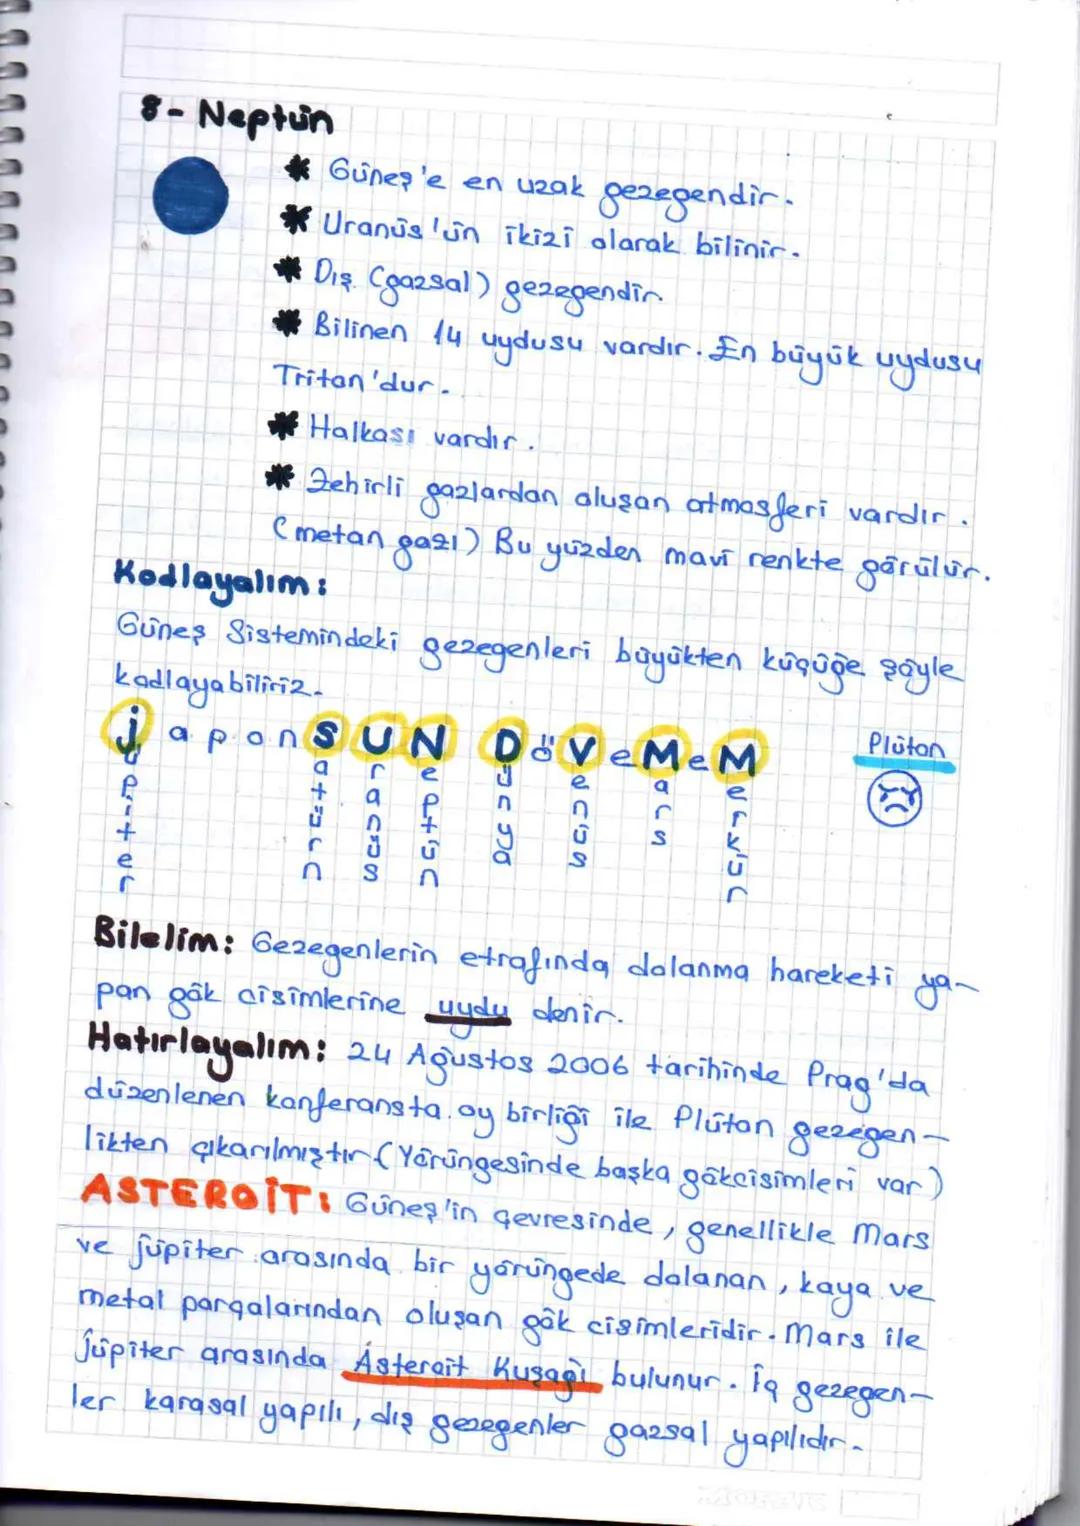 8- Neptün
* Güneş'e en uzak gezegendir.
* Uranüs'ün ikizi olarak bilinir.
* Dış (gazsal) gezegendir.
* Bilinen 14 uydusu vardır. En büyük uydusu
Triton'dur.
* Halkası vardır.
* Zehirli gazlardan oluşan atmosferi vardır.
(metan gazı) Bu yüzden mavi renkte görülür.
Kodlayalım:
Güneş Sistemindeki gezegenleri büyükten küçüğe şöyle
kodlayabiliriz.
japon SUN DöVeMeM
Jüpiter Satürn Uranüs Neptün Dünya Venüs Mars Merkür
Plüton
Bilelim: Gezegenlerin etrafında dolanma hareketi ya-
pan gök cisimlerine uydu denir.
Hatırlayalım: 24 Ağustos 2006 tarihinde Prag'da
düzenlenen konferansta oy birliği ile Plüton gezegen-
likten çıkarılmıştır (Yörüngesinde başka gökcisimleri var)
ASTEROİT: Güneş'in çevresinde, genellikle Mars
ve jüpiter arasında bir yörüngede dolanan, kaya ve
metal parçalarından oluşan gök cisimleridir. Mars ile
jüpiter arasında Asteroit Kuşağı bulunur. İç gezegen-
ler karasal yapılı, dış gezegenler gazsal yapılıdır.